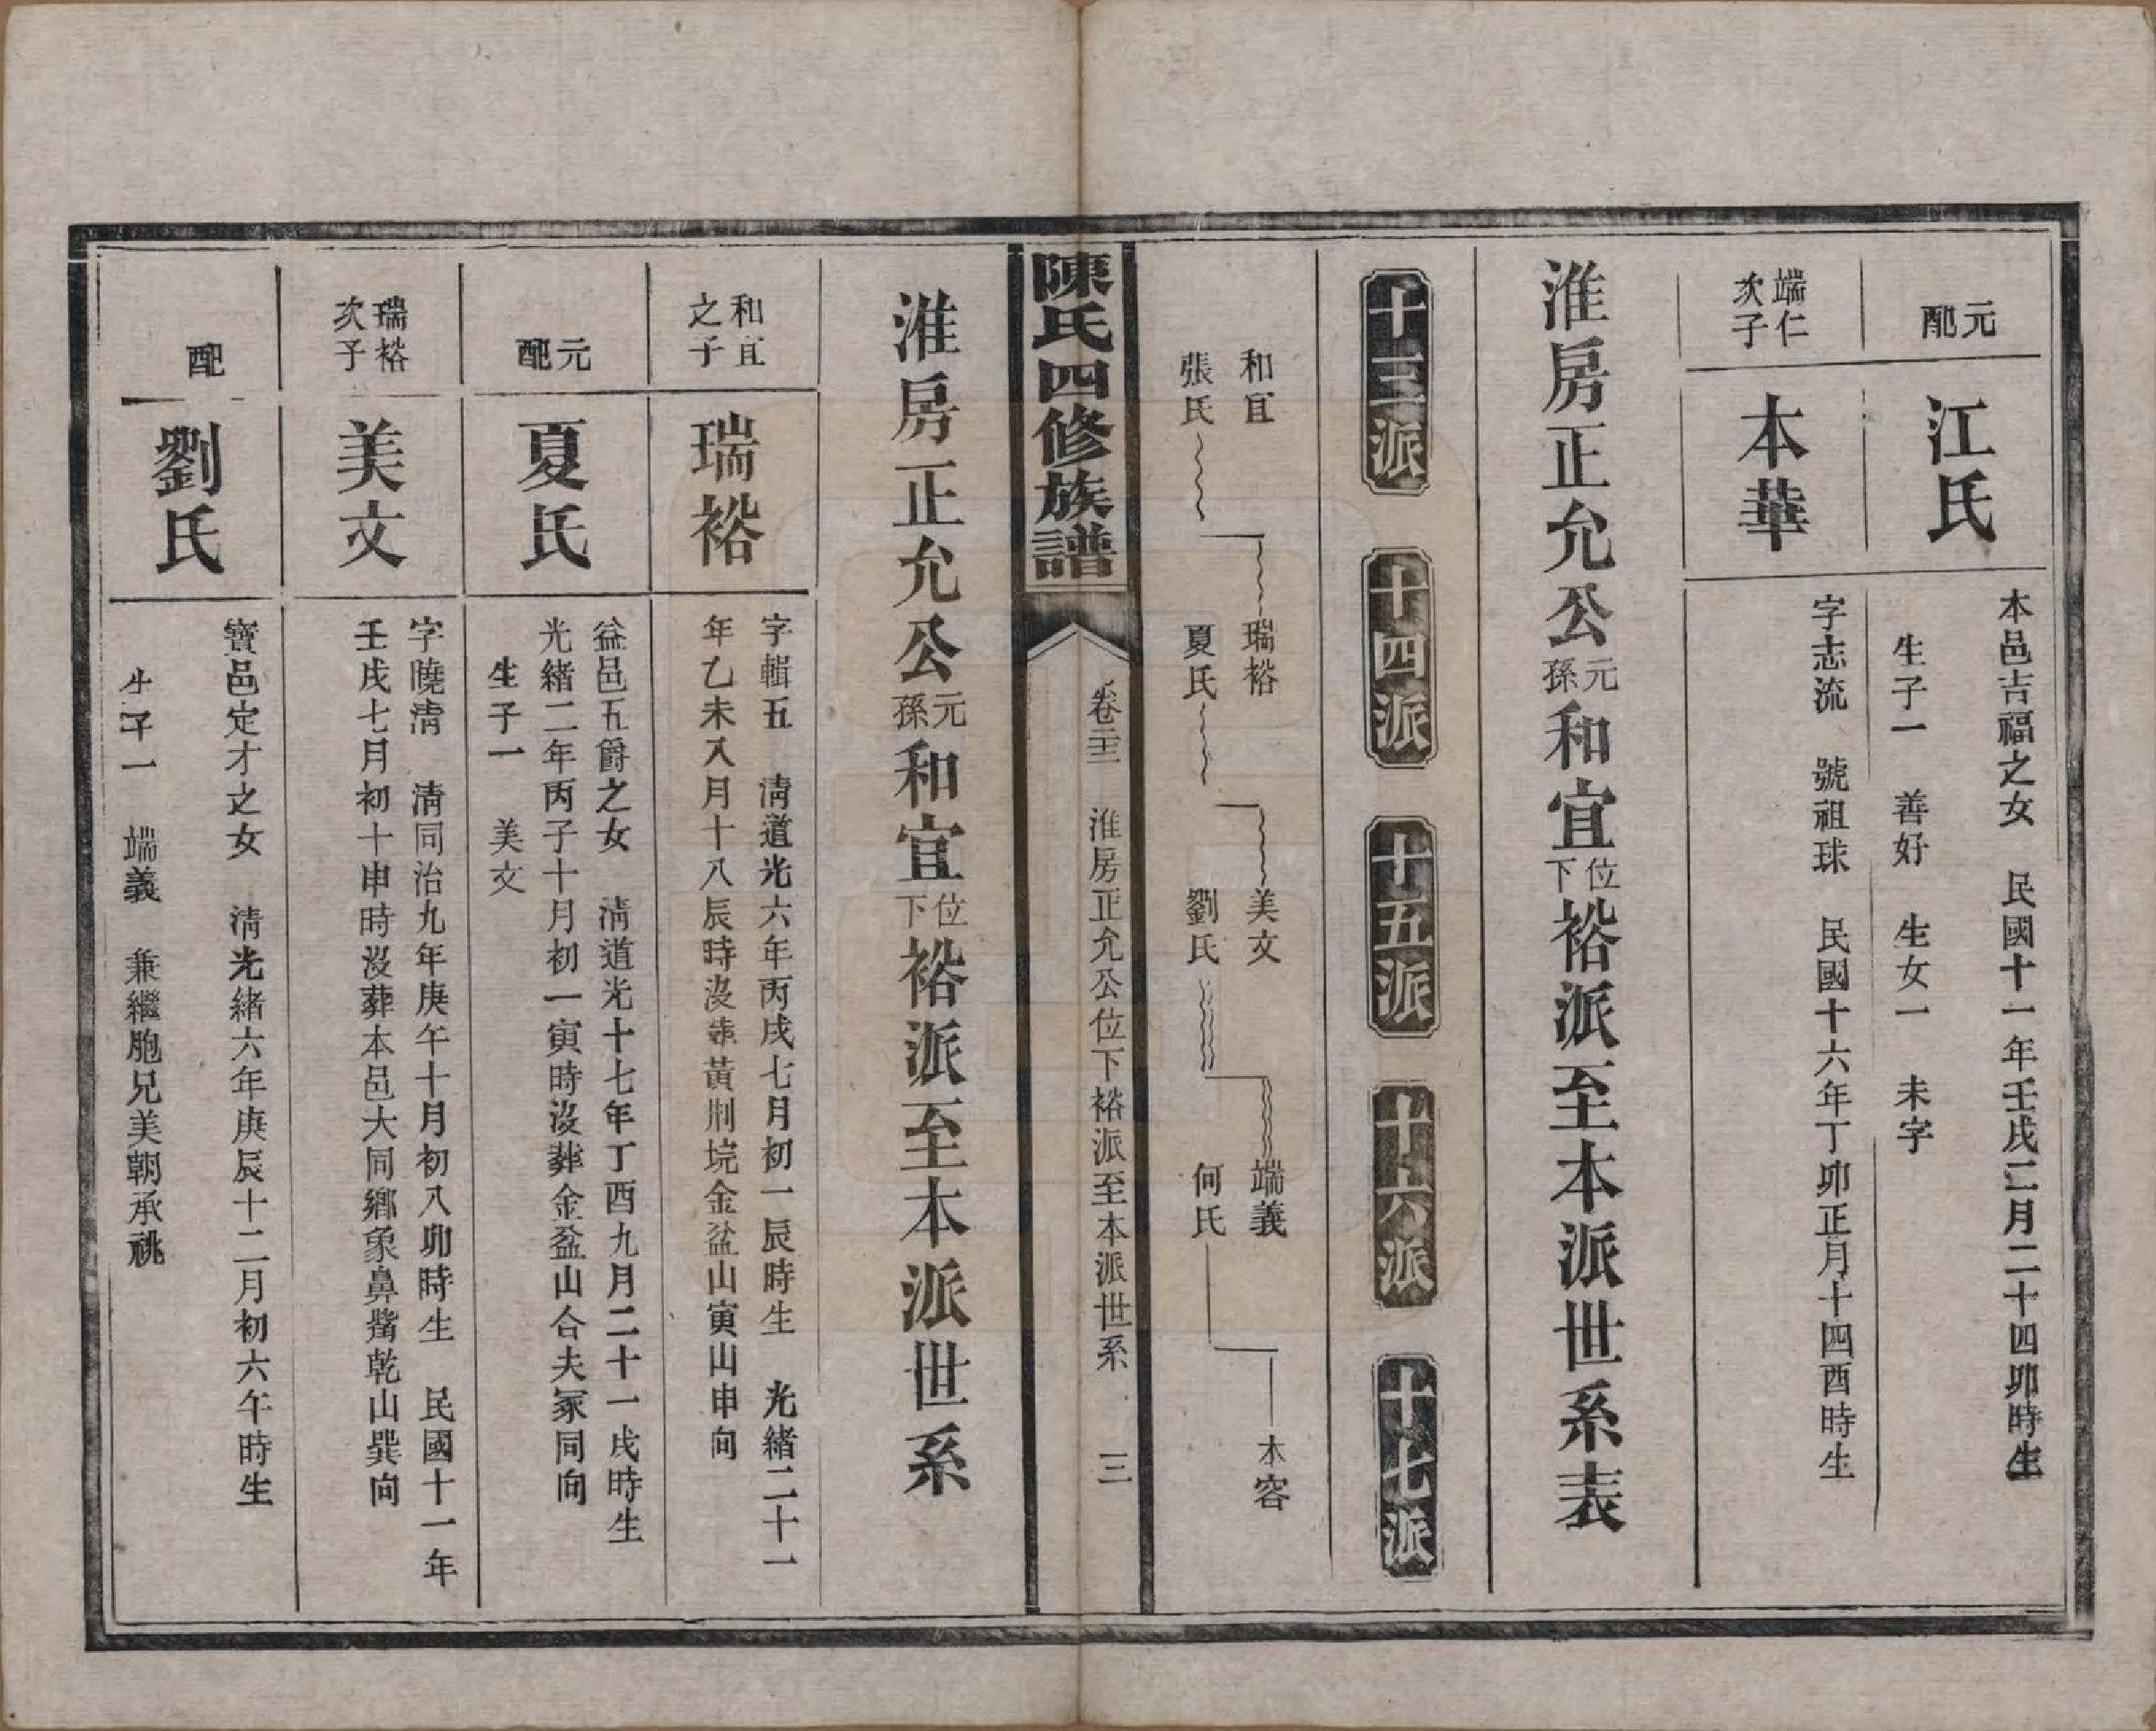 元配
江氏
本邑吉福之女　民國十一年壬戌二月二十四卯時生
生子一　善好　生女一　未字
端仁次子
本華
字志流　號祖球　民國十六年丁卯正月十四酉時生
淮房正允公元孫和宜位下裕派至本派世系表
十三派　十四派　十五派　十六派　十七派
和宜　瑞裕　美文　端義　本容
張氏　夏氏　劉氏　何氏
陳氏四修族譜　卷二十三　淮房正允公位下裕派至本派世系　三
淮房正允公元孫和宜位下裕派至本派世系
和宜之子
瑞裕
字輯五　淸道光六年丙戌七月初一辰時生　光緖二十一
年乙未八月十八辰時沒葬黃荆垸金盆山寅山申向
元配
夏氏
益邑五爵之女　淸道光十七年丁酉九月二十一戌時生
光緖二年丙子十月初一寅時沒葬金盆山合夫冢同向
生子一　美文
瑞裕次子
美文
字曉淸　淸同治九年庚午十月初八卯時生　民國十一年
壬戌七月初十申時沒葬本邑大同鄉象鼻觜乾山巽向
配
劉氏
寶邑定才之女　淸光緖六年庚辰十二月初六午時生
生子一　端義　兼繼胞兄美朝承祧